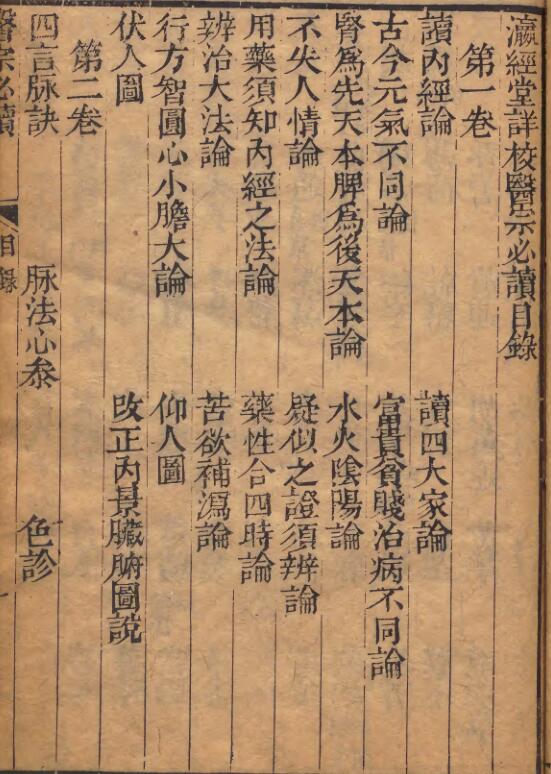 瀛經堂詳校醫宗必讀目錄
第一卷
讀內經論 讀四大家論
古今元氣不同論 富貴貧賤治病不同論
腎為先天本脾為後天本論 水火陰陽論
不失人情論 疑似之證須辨論
用藥須知內經之法論 藥性合四時論
辨治大法論 苦欲補瀉論
行方智圓心小膽大論 仰人圖
伏人圖 改正內景臟腑圖說
第二卷
四言脉訣 脉法心叅 色診
醫宗必讀 目錄 一